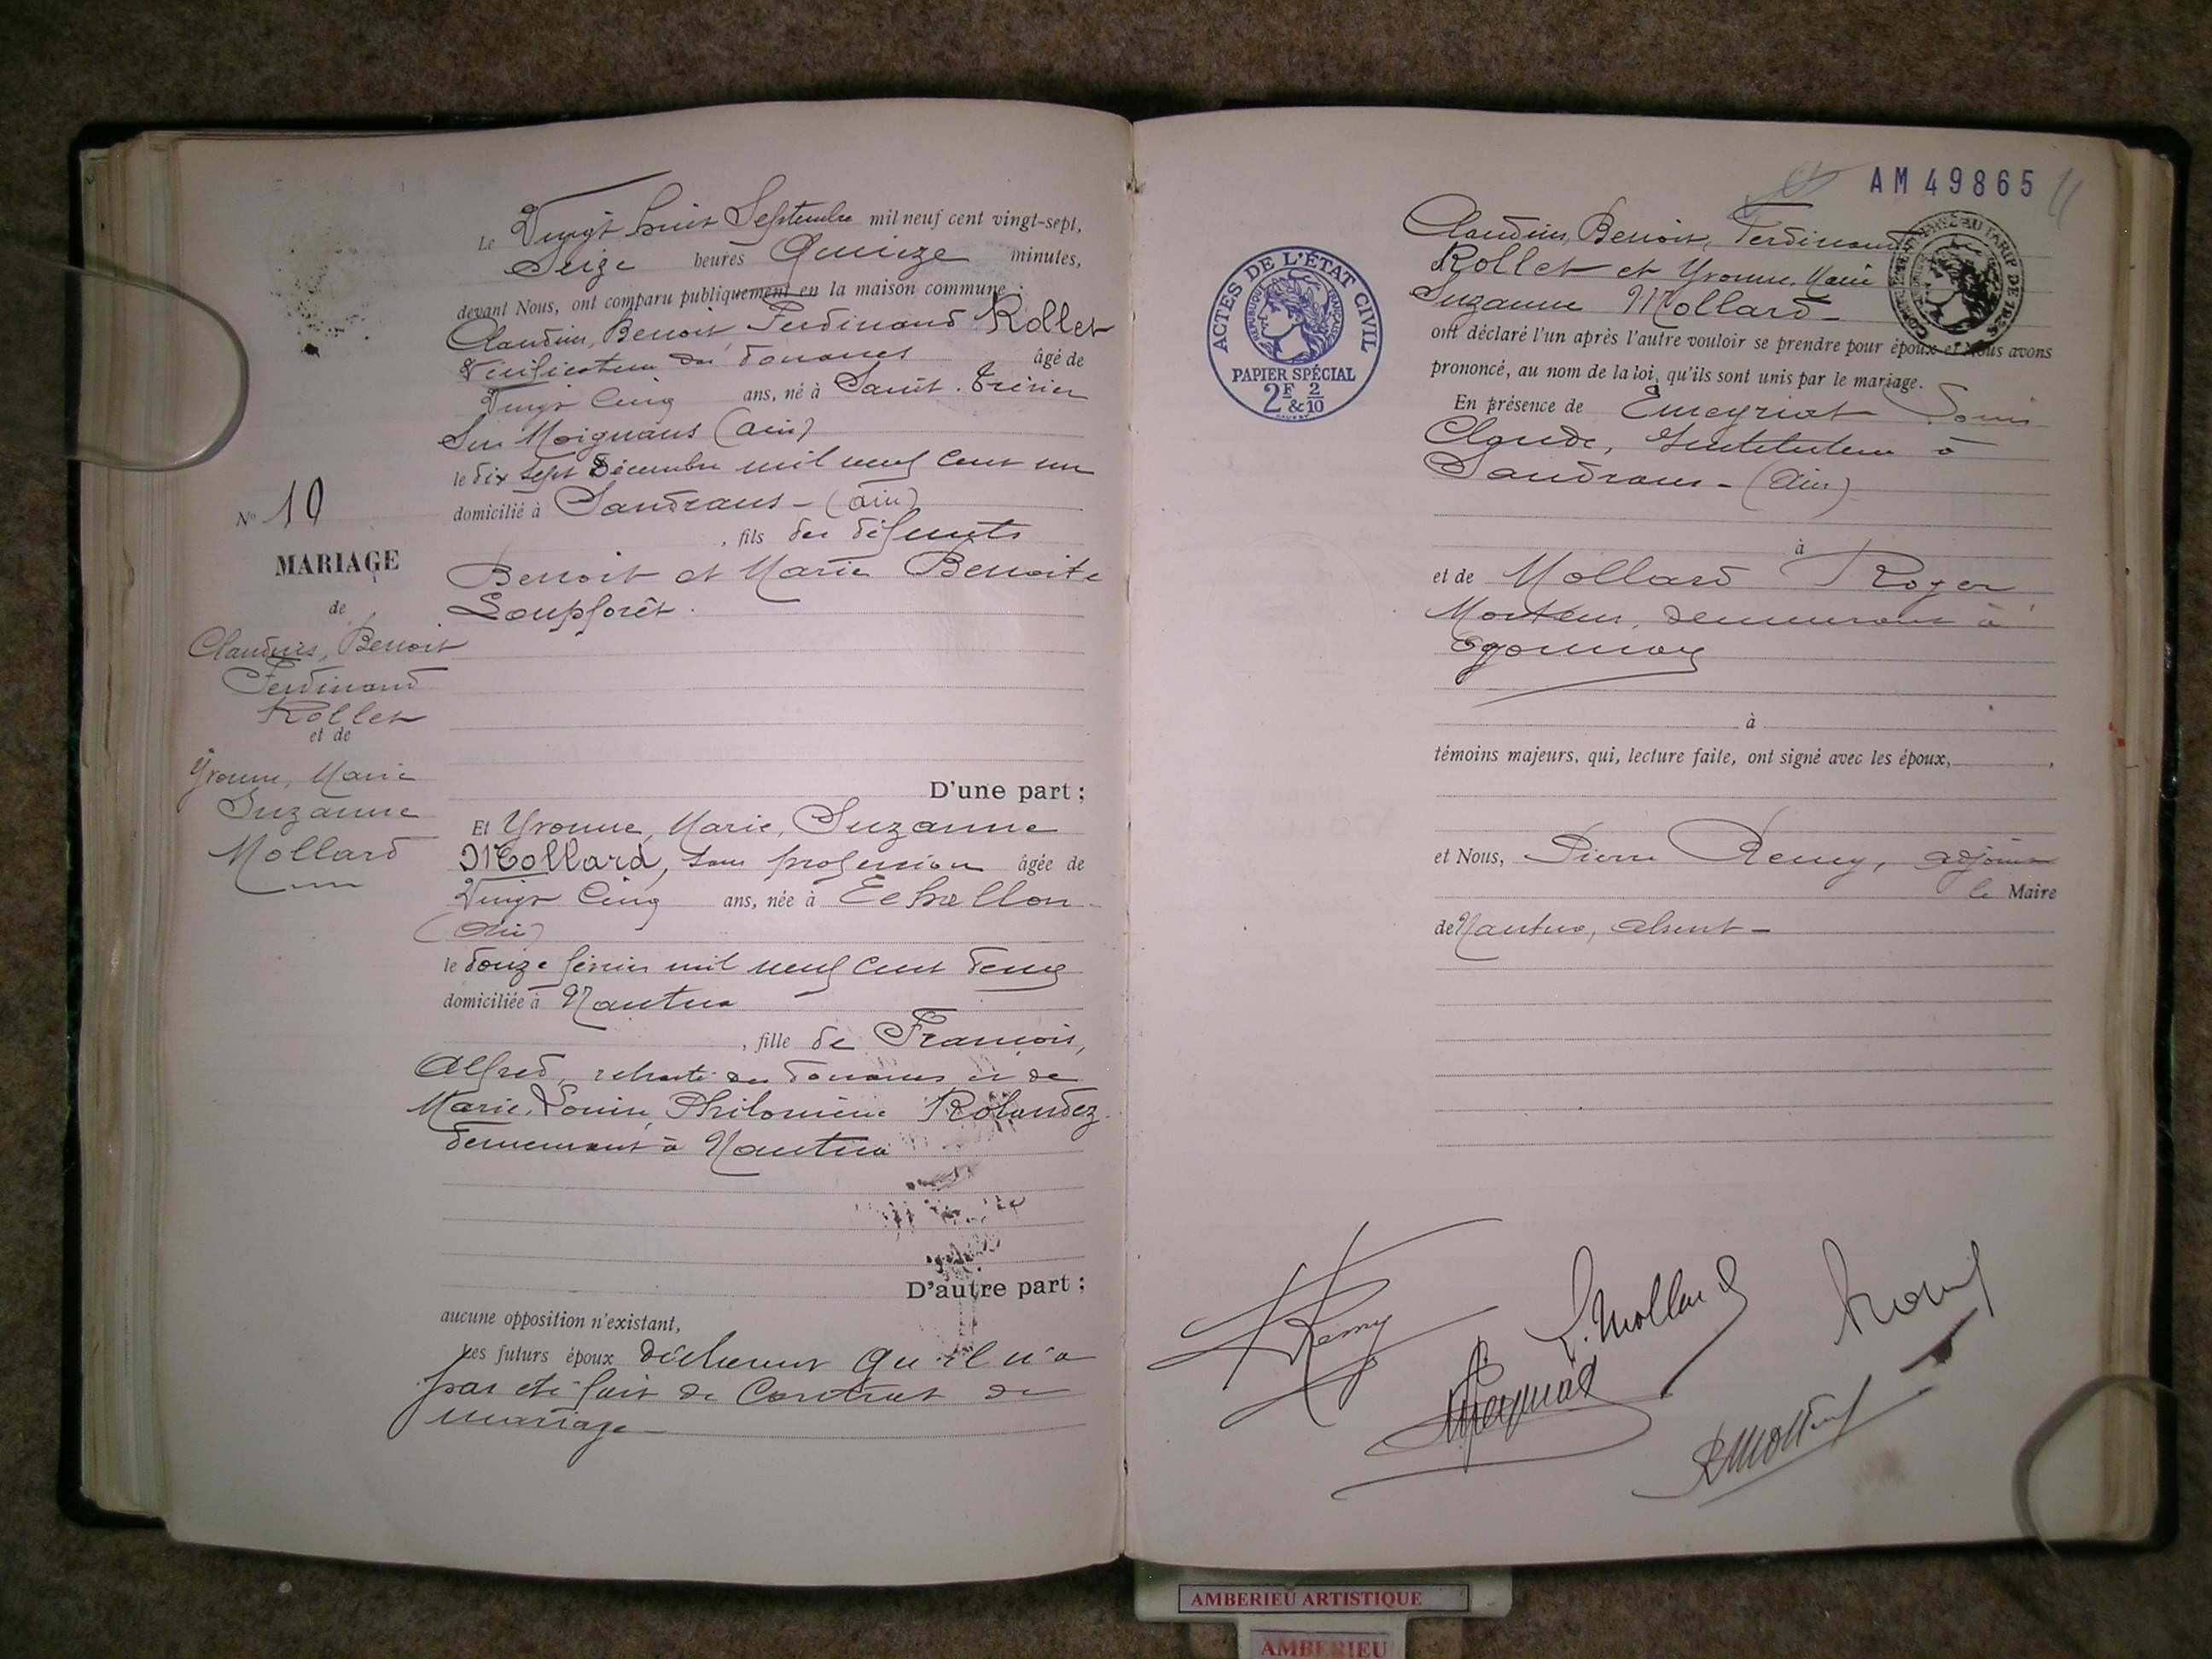 Le Vingt huit Septembre mil neuf cent vingt-sept,
Seize heures Quinze minutes,
devant Nous, ont comparu publiquement en la maison commune :
Claudius, Benoit, Ferdinand Rollet
Vérificateur des douanes âgé de
Vingt Cinq ans, né à Saint-Trivier
Sur Moignans (Ain)
le dix sept Décembre mil neuf cent un
domicilié à Sandrans - (Ain)
, fils des défunts
Benoit et Marie Benoite
Loupforêt.
N° 10
MARIAGE
de
Claudius, Benoit
Ferdinand
Rollet
et de
Yvonne, Marie
Suzanne
Mollard
D'une part ;
Et Yvonne, Marie, Suzanne
Mollard, sans profession âgée de
Vingt Cinq ans, née à Echallon
(Ain)
le douze février mil neuf cent deux
domiciliée à Nantua
, fille de François,
Alfred, retraité des douanes et de
Marie, Louise, Philomène Rolandez
demeurant à Nantua
D'autre part ;
aucune opposition n'existant,
Les futurs époux déclarent qu'il n'a
pas été fait de Contrat de
mariage
AM 49865
ACTES DE L'ÉTAT CIVIL
RÉPUBLIQUE FRANÇAISE
PAPIER SPÉCIAL
2F & 2/10
Claudius, Benoit, Ferdinand
Rollet et Yvonne, Marie
Suzanne Mollard -
ont déclaré l'un après l'autre vouloir se prendre pour époux et Nous avons
prononcé, au nom de la loi, qu'ils sont unis par le mariage.
En présence de Emeyriat Louis
Claude, Instituteur à
Sandrans - (Ain)
à
et de Mollard Roger
Monteur, demeurant à
Oyonnax
à
témoins majeurs, qui, lecture faite, ont signé avec les époux,
et Nous, Pierre Remy, adjoint
le Maire
de Nantua, absent -
Remy
Y. Mollard
R Mollard
AMBERIEU ARTISTIQUE
AMBERIEU